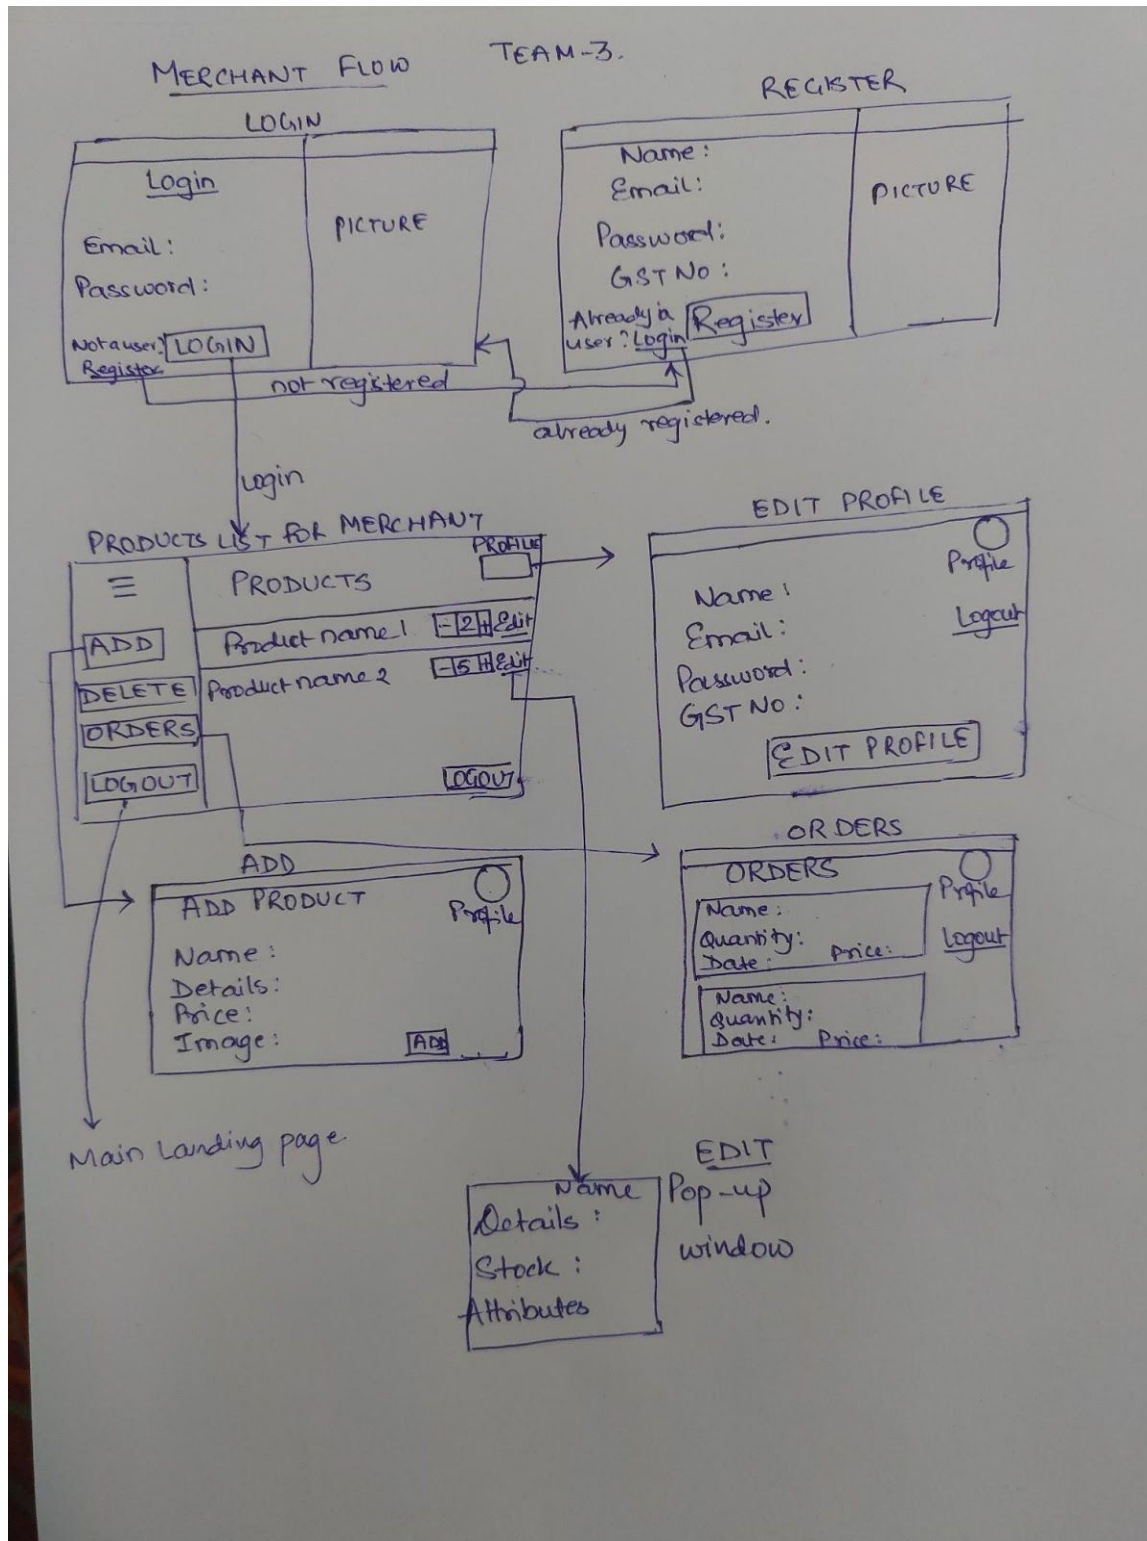 MERCHANT FLOW
TEAM-3.
LOGIN
Login
Email:
Password:
Not a user?
Register
LOGIN
PICTURE
REGISTER
Name:
Email:
Password:
GST No:
Already a
user? Login
Register
PICTURE
not registered
already registered.
Login
PRODUCTS LIST FOR MERCHANT
PROFILE
PRODUCTS
ADD
DELETE
ORDERS
LOGOUT
Product name 1 - 2 + Edit
Product name 2 - 5 + Edit
LOGOUT
EDIT PROFILE
Profile
Logout
Name:
Email:
Password:
GST No:
EDIT PROFILE
ADD
ADD PRODUCT
Profile
Name:
Details:
Price:
Image:
ADD
ORDERS
ORDERS
Profile
Logout
Name:
Quantity:
Date: Price:
Name:
Quantity:
Date: Price:
Main Landing page.
Name
Details:
Stock:
Attributes
EDIT
Pop-up
window